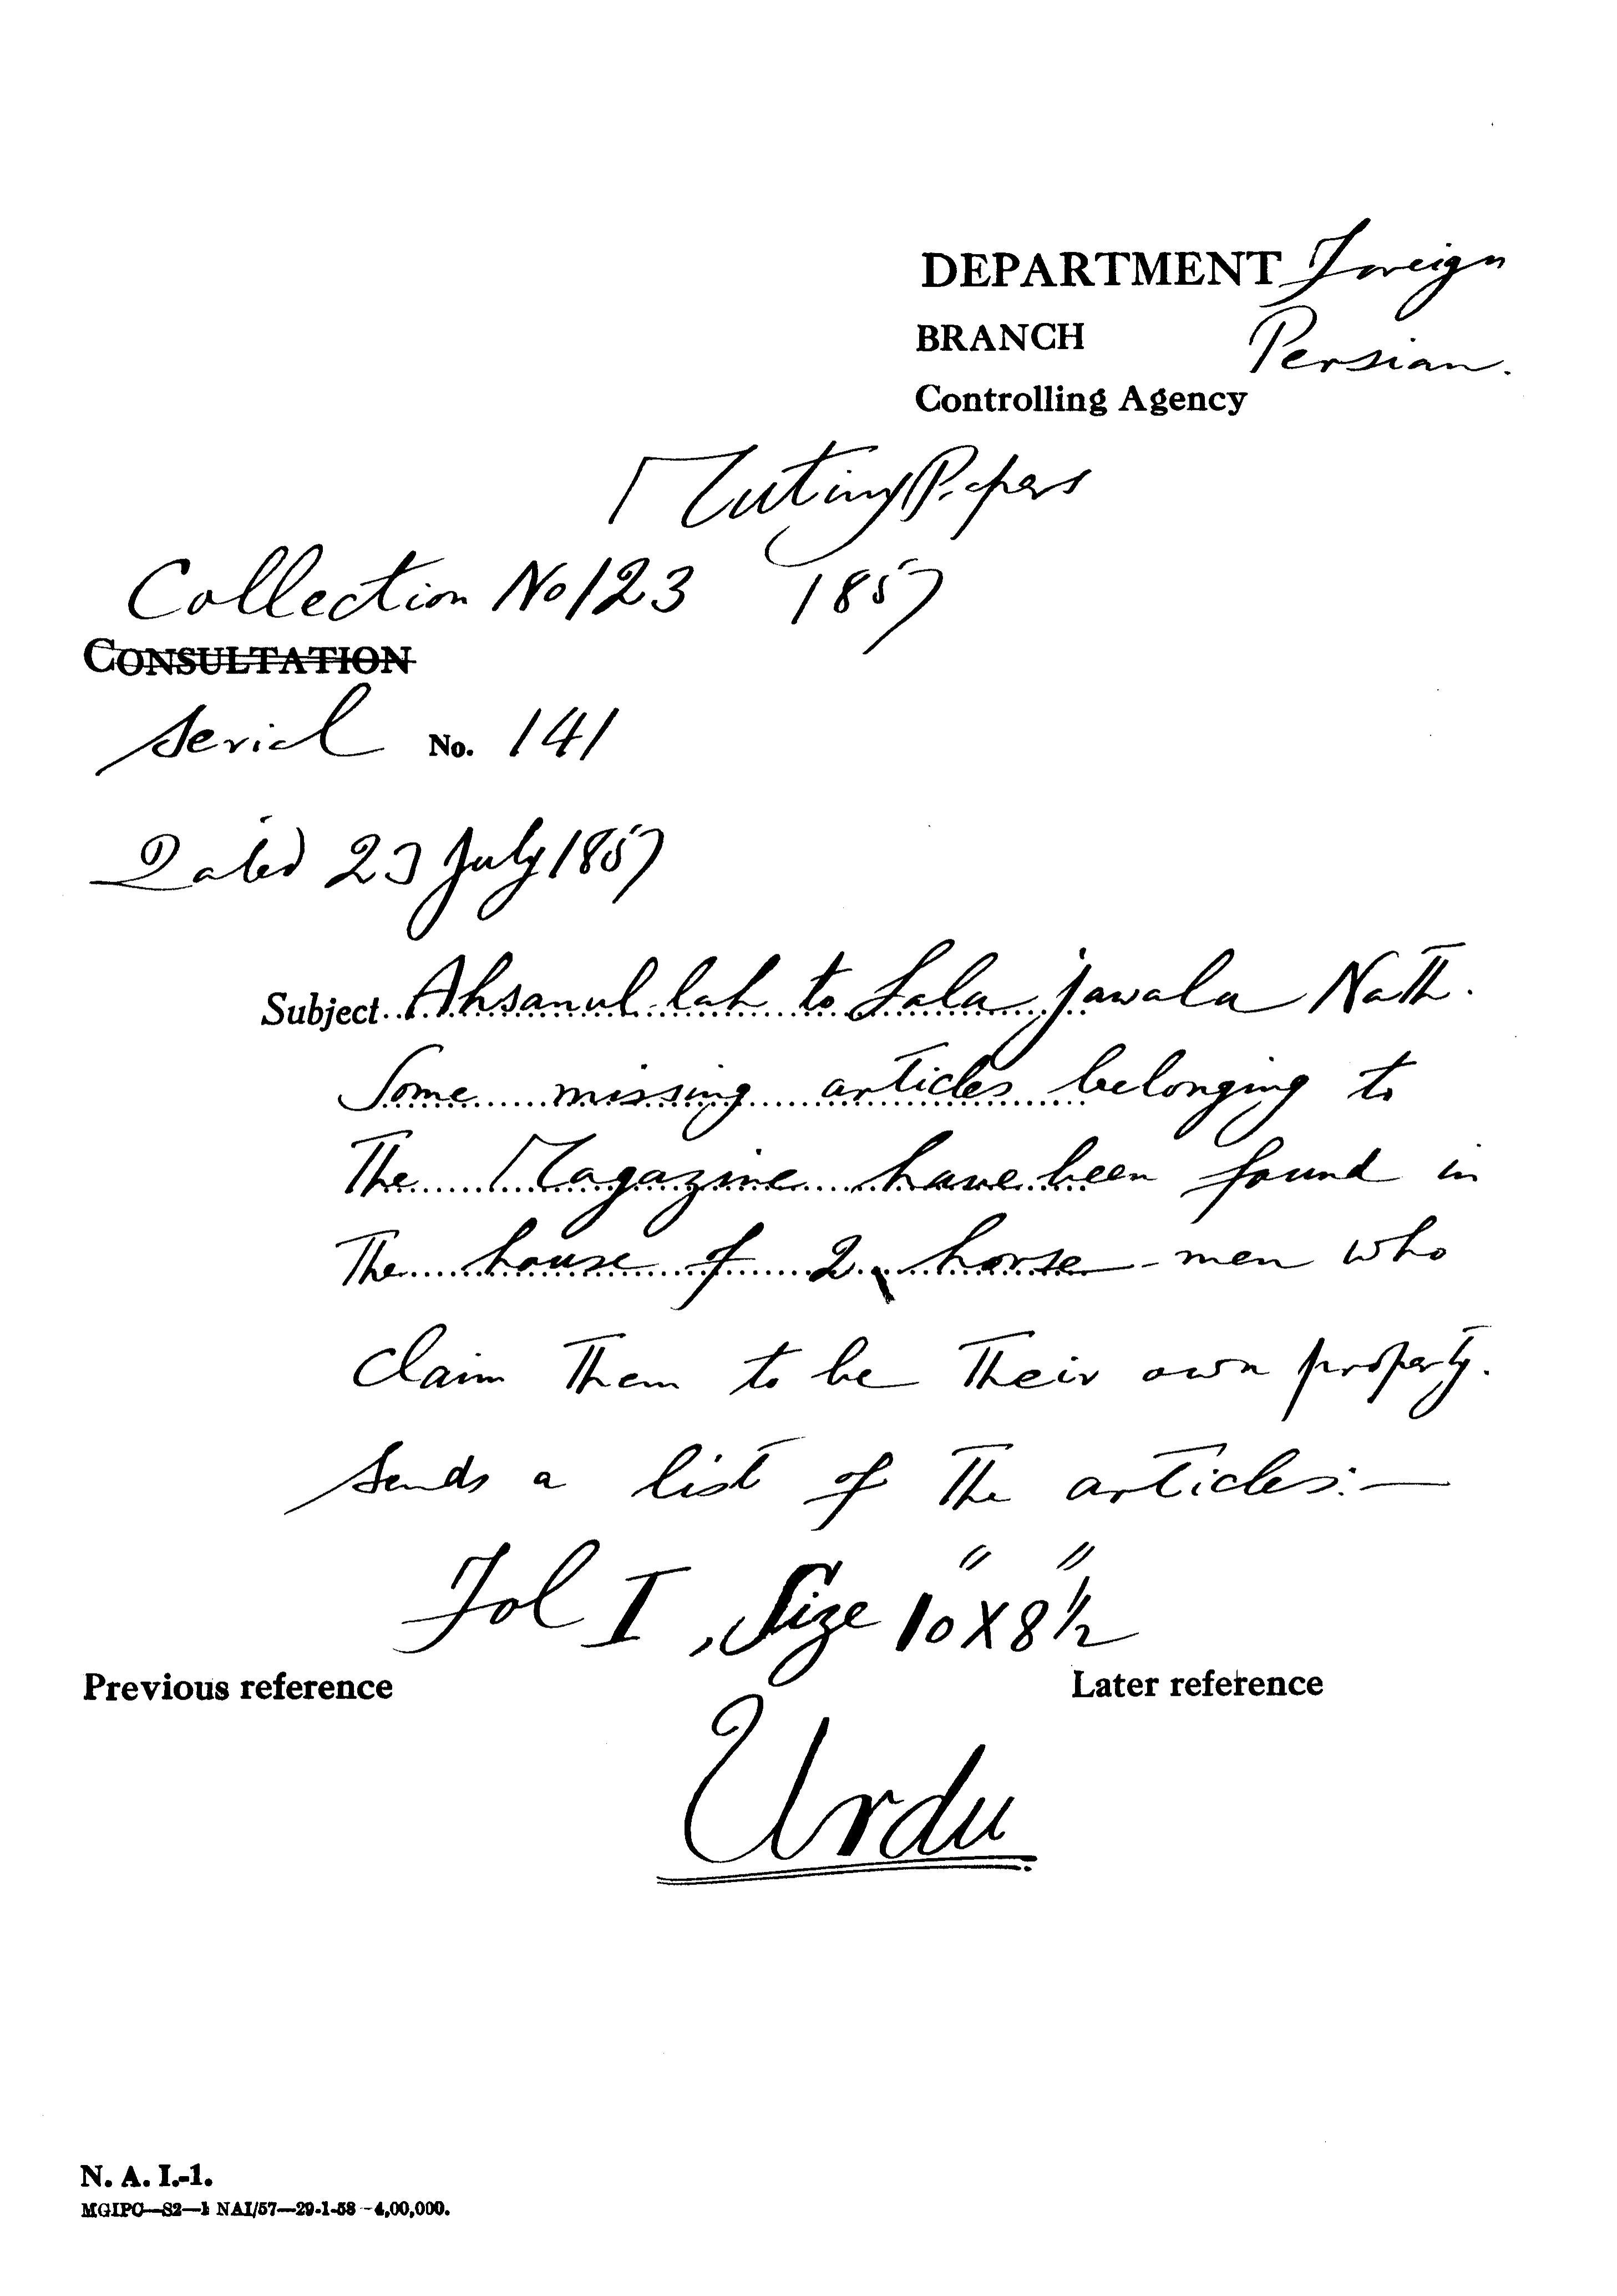 DEPARTMENT Foreign
BRANCH Persian.
Controlling Agency
Mutiny Papers
Collection No 123 1857
CONSULTATION
Serial No. 141
Dated 23 July 1857
Subject Ahsanul-lah to Lala Jawala Nath.
Some missing articles belonging to
The Magazine have been found in
The house of 2 horse-men who
claim Them to be Their own property.
Sends a list of The articles:—
Fol I, Size 10" X 8½"
Previous reference Later reference
Urdu
N. A. I.-1.
MGIPC—S2—1 NAI/57—29-1-58—4,00,000.